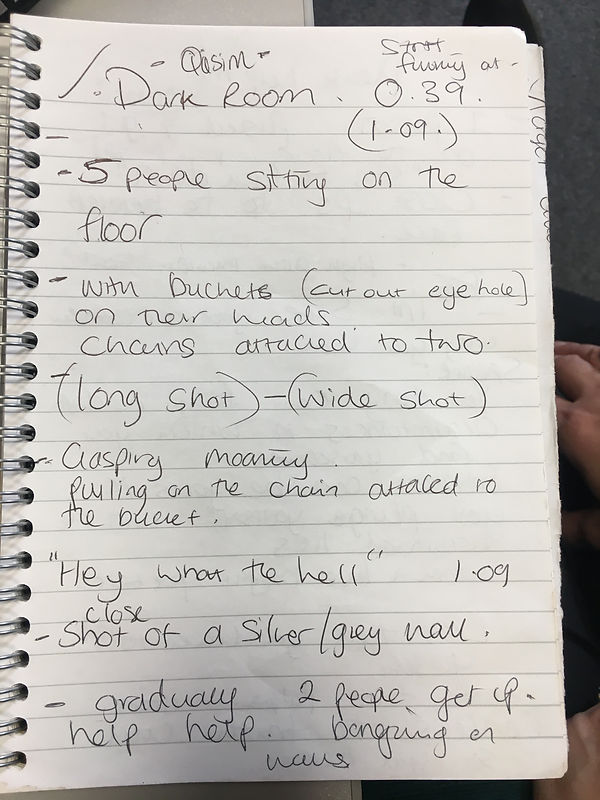 - Qasim -
Start
funny at -
Dark Room. 0.39.
(1.09.)
- 5 people sitting on the
floor
- with buckets (cut out eye hole)
on their heads.
Chains attaced to two.
(long shot) - (wide shot)
- Gasping moaning.
Pulling on the chain attaced to
the bucket.
"Hey what the hell" 1.09
close
- Shot of a Silver/grey wall.
- gradually 2 people get up.
help help. banging on
walls